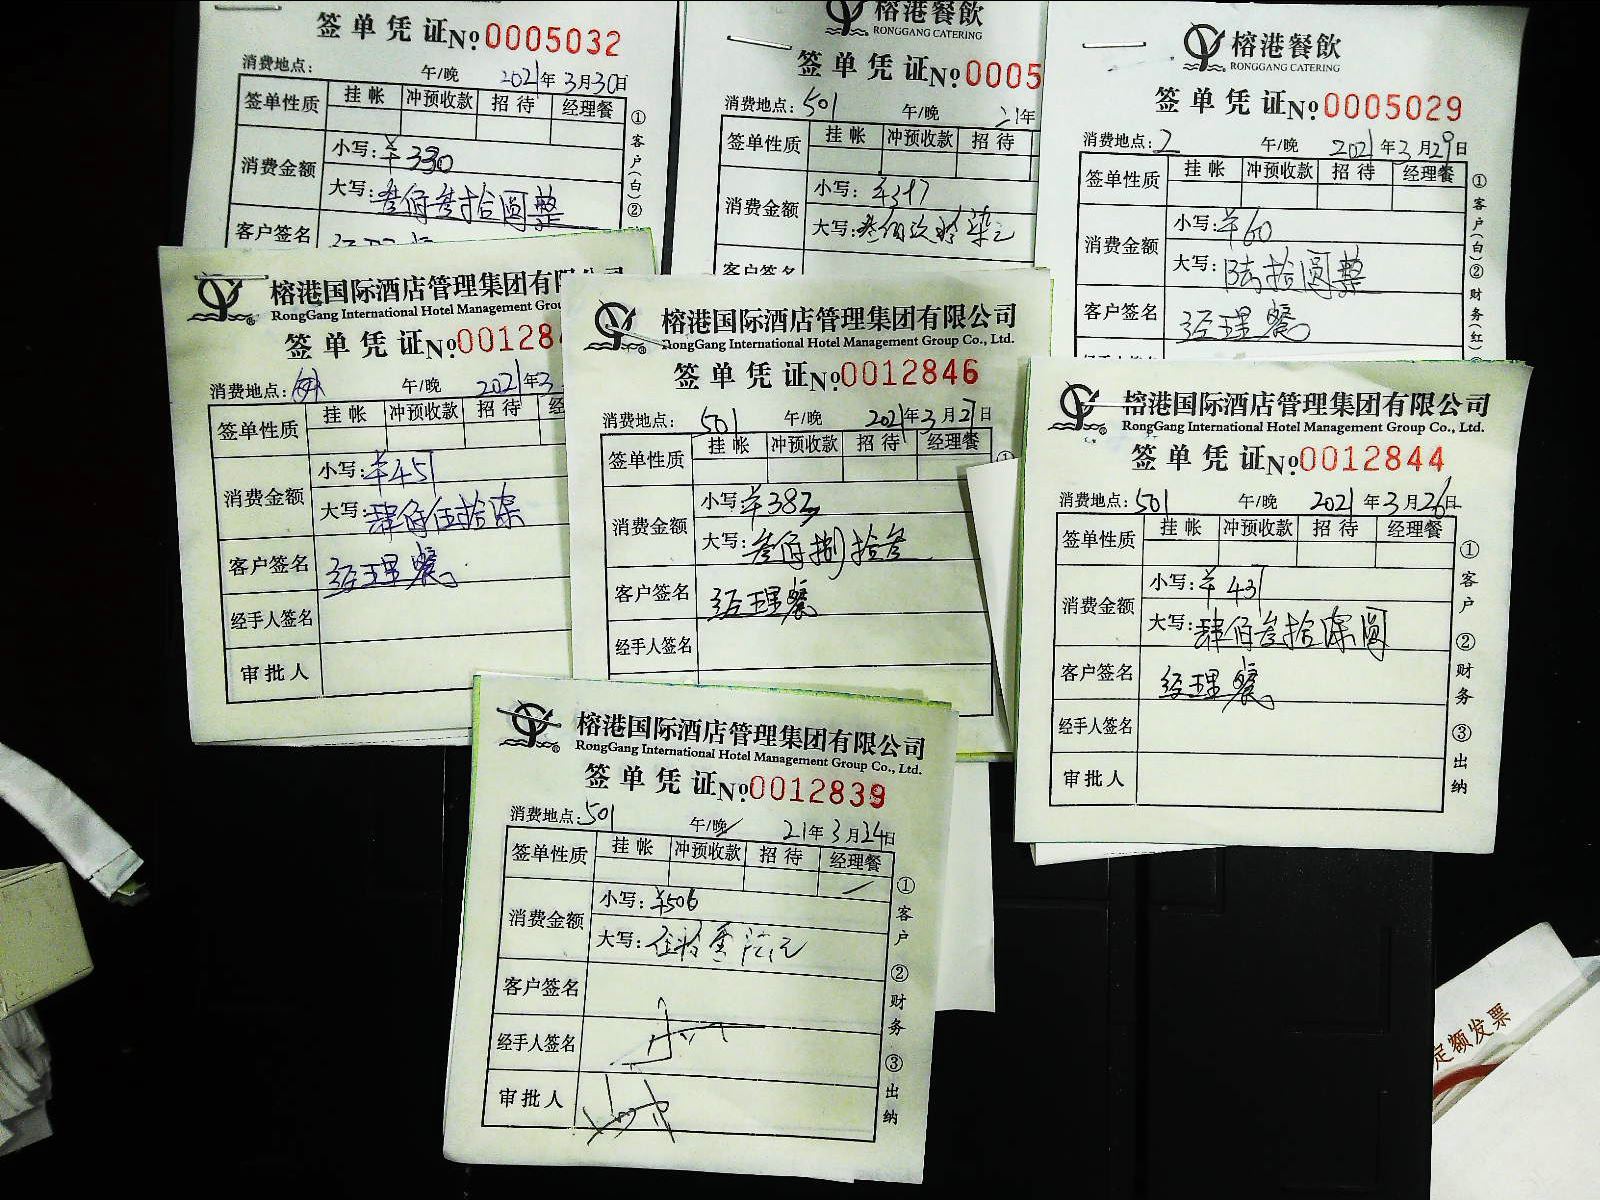 签单凭证 No 0005032
消费地点: 午/晚 2021年3月30日
签单性质 挂帐 冲预收款 招待 经理餐
消费金额 小写:￥330
大写:叁佰叁拾圆整
客户签名
①客户(白)②
榕港餐飲
RONGGANG CATERING
签单凭证 No 0005
消费地点:501 午/晚 21年
签单性质 挂帐 冲预收款 招待
消费金额 小写:
大写:
客户签名
榕港餐飲
RONGGANG CATERING
签单凭证 No 0005029
消费地点:2 午/晚 2021年3月29日
签单性质 挂帐 冲预收款 招待 经理餐
消费金额 小写:￥60
大写:陆拾圆整
客户签名 经理餐
①客户(白)②财务(红)
榕港国际酒店管理集团有限
RongGang International Hotel Management Grou
签单凭证 No 001284
消费地点: 午/晚 2021年3
签单性质 挂帐 冲预收款 招待 经
消费金额 小写:￥457
大写:肆佰伍拾柒
客户签名 经理餐
经手人签名
审批人
榕港国际酒店管理集团有限公司
RongGang International Hotel Management Group Co., Ltd.
签单凭证 No 0012846
消费地点:501 午/晚 2021年3月27日
签单性质 挂帐 冲预收款 招待 经理餐
消费金额 小写:￥383
大写:叁佰捌拾叁
客户签名 经理餐
经手人签名
榕港国际酒店管理集团有限公司
RongGang International Hotel Management Group Co., Ltd.
签单凭证 No 0012844
消费地点:501 午/晚 2021年3月26日
签单性质 挂帐 冲预收款 招待 经理餐
消费金额 小写:￥437
大写:肆佰叁拾柒圆
客户签名 经理餐
经手人签名
审批人
①客户 ②财务 ③出纳
榕港国际酒店管理集团有限公司
RongGang International Hotel Management Group Co., Ltd.
签单凭证 No 0012839
消费地点:501 午/晚 21年3月24日
签单性质 挂帐 冲预收款 招待 经理餐
消费金额 小写:￥506
大写:
客户签名
经手人签名
审批人
①客户 ②财务 ③出纳
定额发票